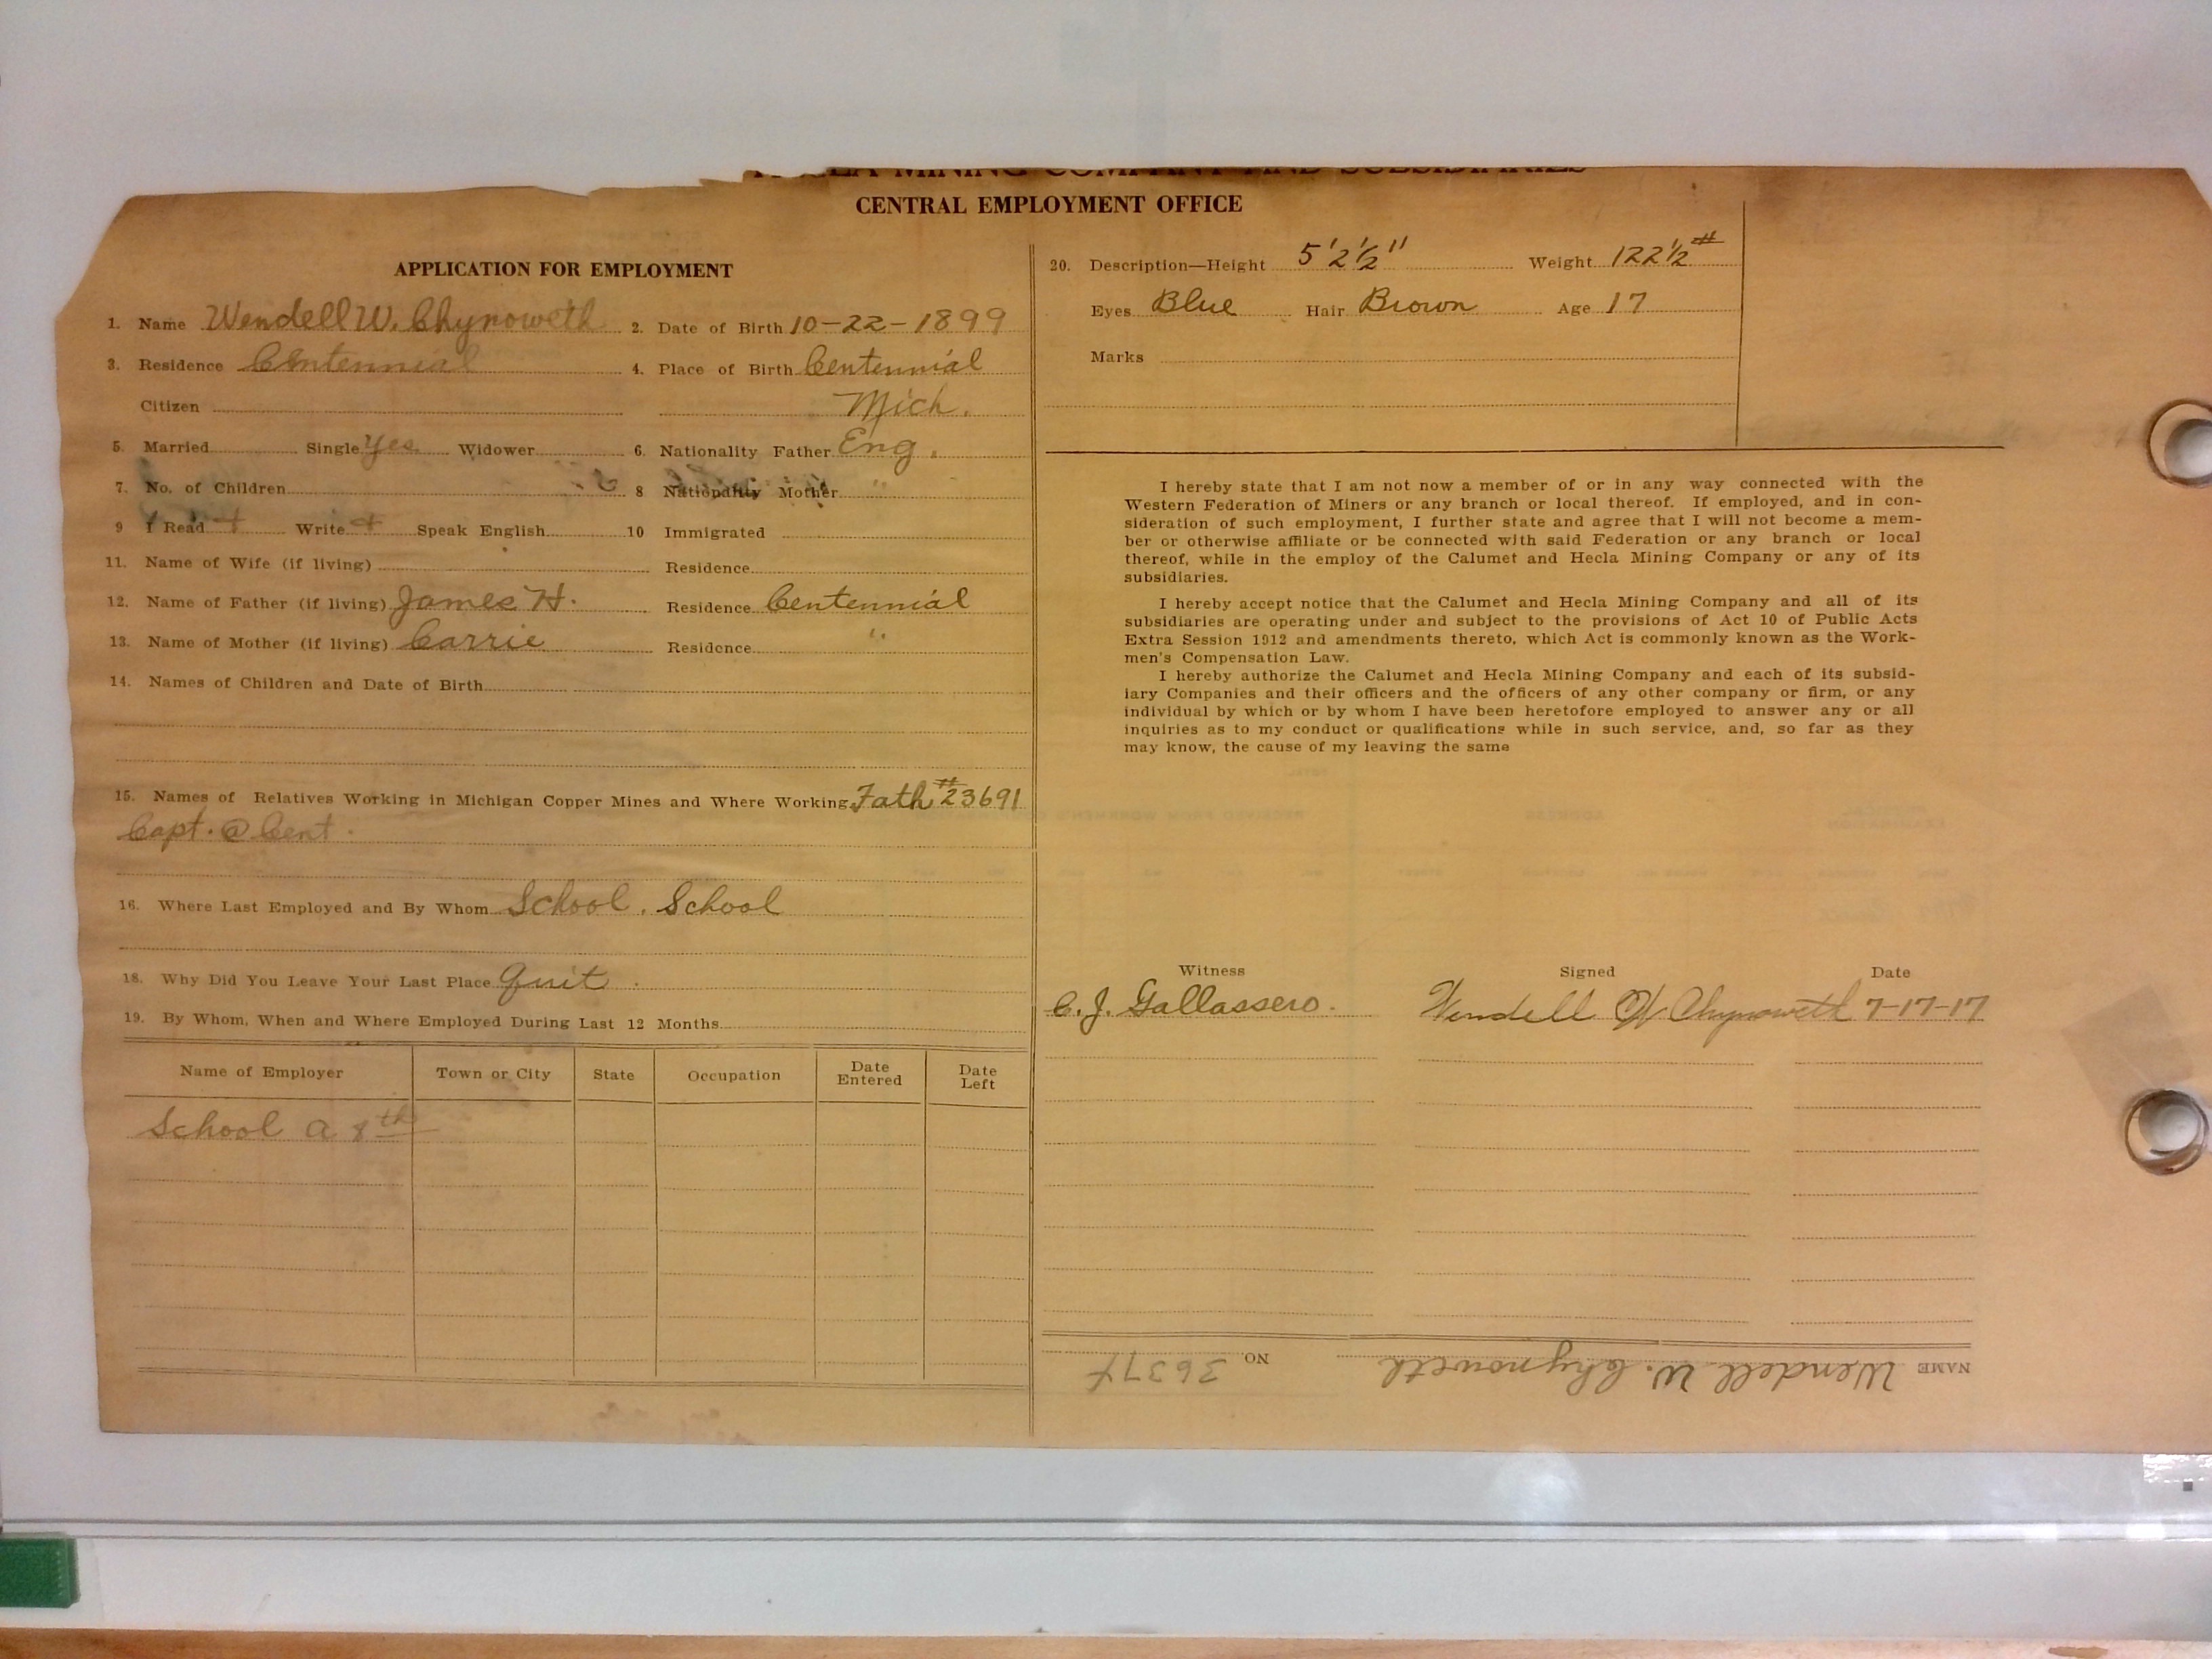 HECLA MINING COMPANY AND SUBSIDIARIES
CENTRAL EMPLOYMENT OFFICE
APPLICATION FOR EMPLOYMENT
1. Name Wendell W. Chynoweth 2. Date of Birth 10-22-1899
3. Residence Centennial 4. Place of Birth Centennial
Citizen Mich.
5. Married Single Yes Widower 6. Nationality Father Eng.
7. No. of Children 8 Nationality Mother "
9 I Read + Write + Speak English 10 Immigrated
11. Name of Wife (if living) Residence
12. Name of Father (if living) James H. Residence Centennial
13. Name of Mother (if living) Carrie Residence "
14. Names of Children and Date of Birth
15. Names of Relatives Working in Michigan Copper Mines and Where Working Fath #23691
Capt. @ Cent.
16. Where Last Employed and By Whom School. School
18. Why Did You Leave Your Last Place Quit.
19. By Whom, When and Where Employed During Last 12 Months
Name of Employer Town or City State Occupation Date Entered Date Left
School a 8th
20. Description—Height 5'2½" Weight 122½#
Eyes Blue Hair Brown Age 17
Marks
I hereby state that I am not now a member of or in any way connected with the
Western Federation of Miners or any branch or local thereof. If employed, and in con-
sideration of such employment, I further state and agree that I will not become a mem-
ber or otherwise affiliate or be connected with said Federation or any branch or local
thereof, while in the employ of the Calumet and Hecla Mining Company or any of its
subsidiaries.
I hereby accept notice that the Calumet and Hecla Mining Company and all of its
subsidiaries are operating under and subject to the provisions of Act 10 of Public Acts
Extra Session 1912 and amendments thereto, which Act is commonly known as the Work-
men's Compensation Law.
I hereby authorize the Calumet and Hecla Mining Company and each of its subsid-
iary Companies and their officers and the officers of any other company or firm, or any
individual by which or by whom I have been heretofore employed to answer any or all
inquiries as to my conduct or qualifications while in such service, and, so far as they
may know, the cause of my leaving the same
Witness Signed Date
C. J. Gallassero. Wendell W Chynoweth 7-17-17
NAME Wendell W. Chynoweth NO. 36374